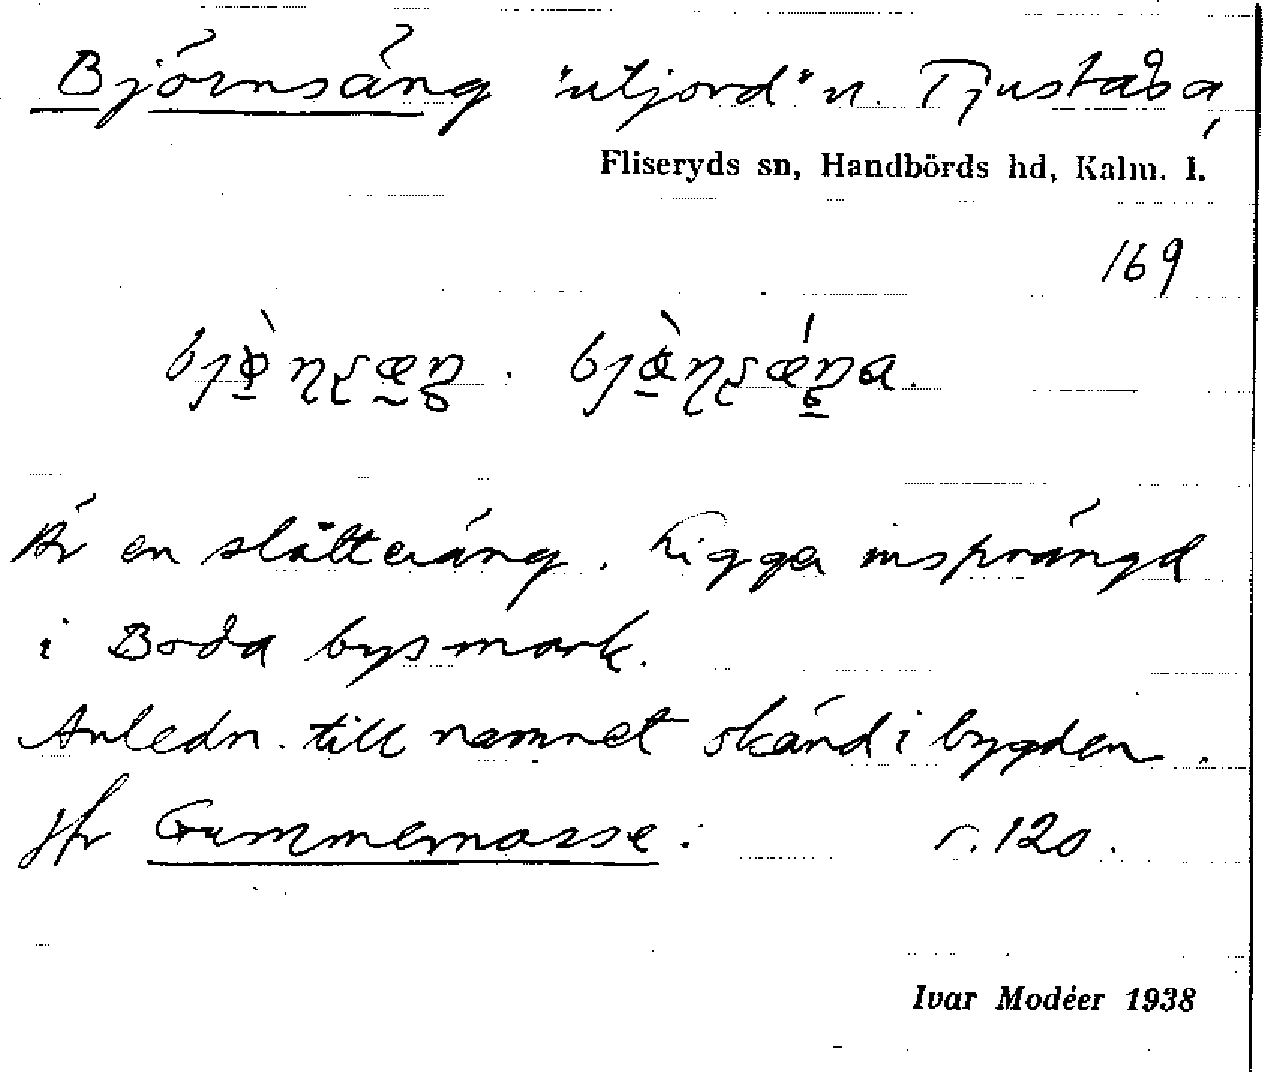 Björnsäng "utjord" n. Tjustada,
Fliseryds sn, Handbörds hd, Kalm. l.
169
Är en slåtteräng. Ligger insprängd
i Boda bys mark.
Anledn. till namnet okänd i bygden.
Jfr Gummemosse. r. 120.
Ivar Modéer 1938